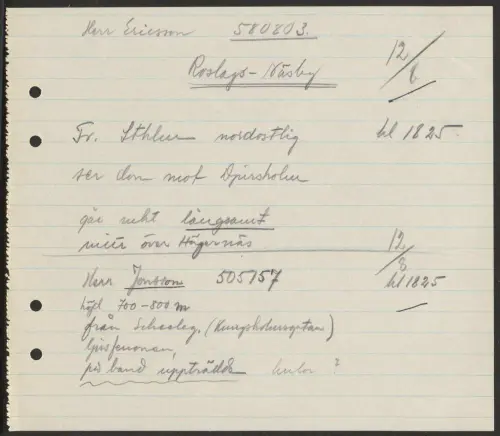 Herr Ericsson 580803.
12/8
Roslags-Näsby
Fr. Sthlm nordostlig kl 1825
ser dom mot Djursholm
går sakt långsamt
mitt över Hägernäs
12/8
Herr Jonsson 505157 kl 1825
höjd 700-800 m
från Scheeleg. (Kungsholmsgatan)
ljusfenomen,
på band uppträdde kulor ?